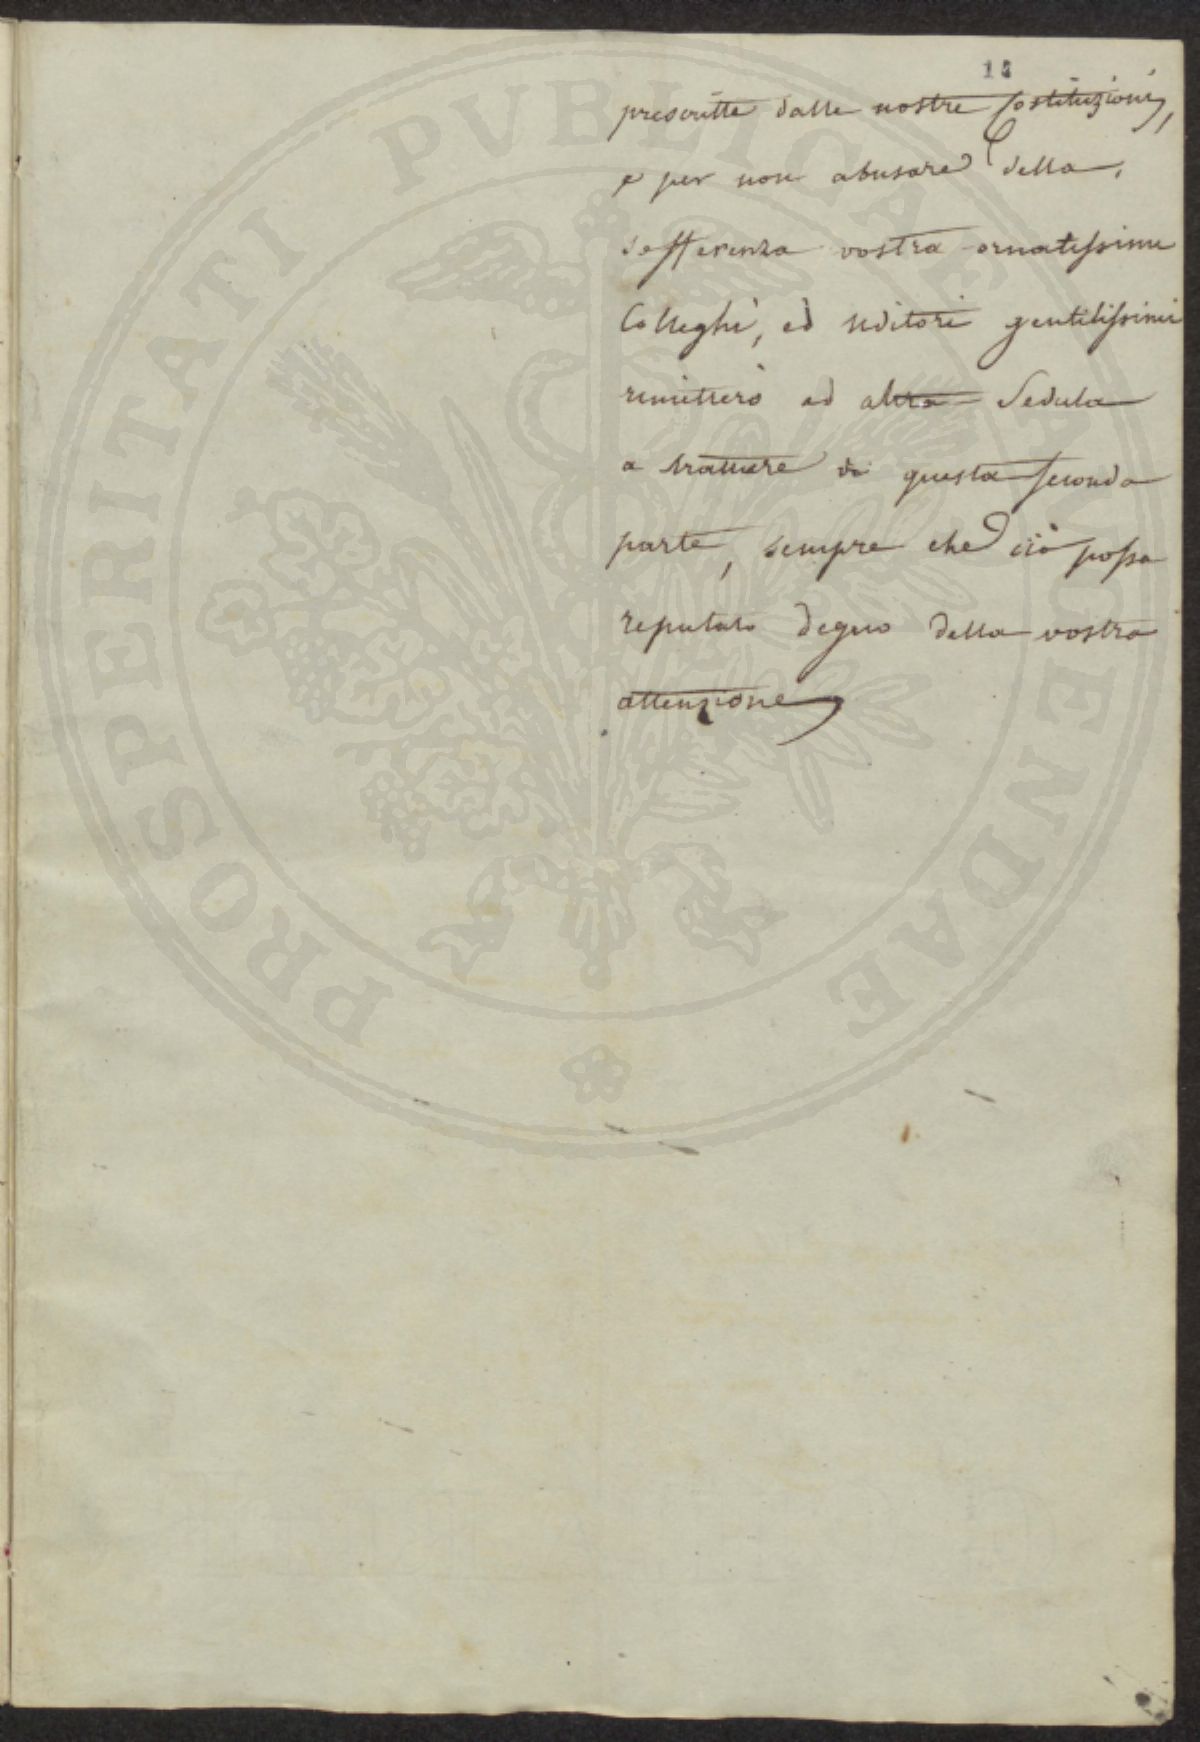 13
prescritte dalle nostre Costituzioni,
e per non abusare della,
sofferenza vostra ornatissimi
Colleghi, ed uditori gentilissimi
rimetterò ad altra Seduta
a trattare di questa seconda
parte, sempre che ciò possa
reputato degno della vostra
attenzione
PROSPERITATI PVBLICAE AVGENDAE